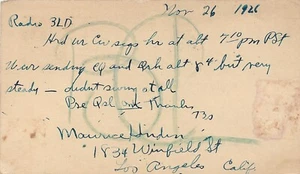 Nov 26 1926
Radio 3LD
Hrd ur Cw sigs hr at abt 7 10 pm PSt
U ur sending CQ and Qrk abt r4 but very
steady - didnt swing at all
Pse Qsl om Thanks
73s
Maurice
1834 Winfield St
Los Angeles Calif